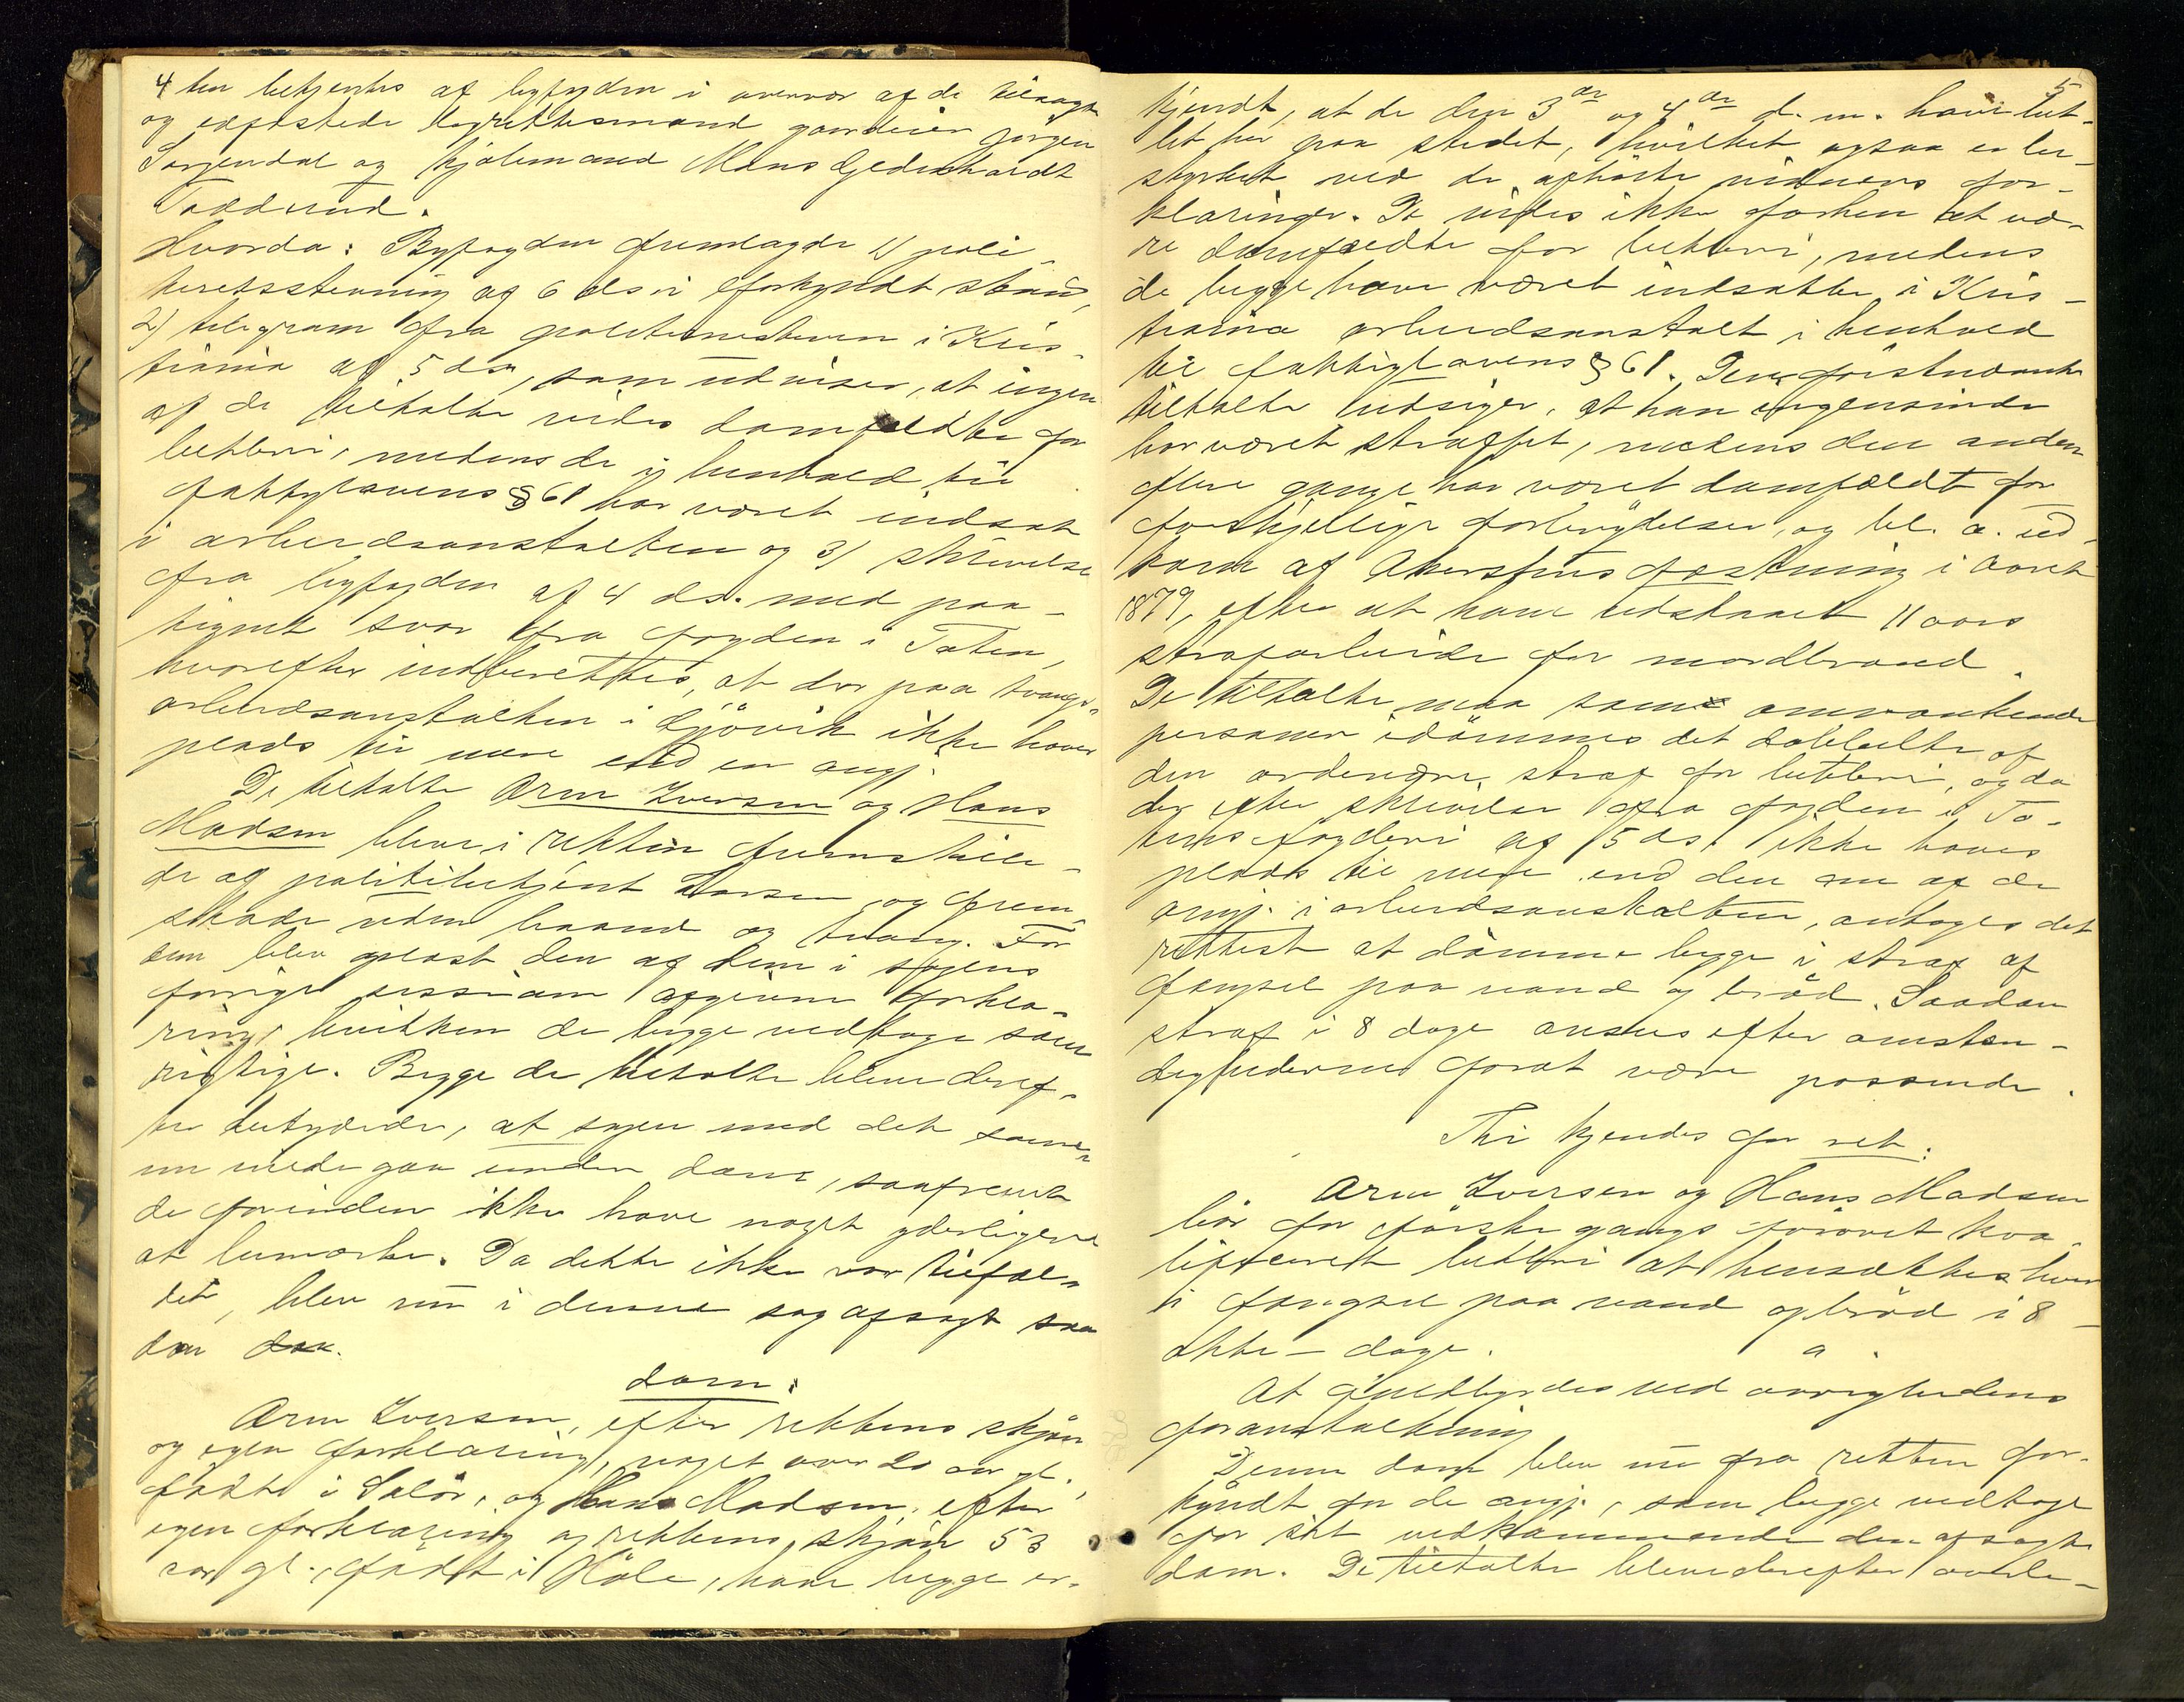 4
ten betjentes af byfogden i overvær af de tilsagte
og edfæstede lagrettesmænd gaardeier Jørgen
Sorgendal og hjulmand Mons Gjedenhardt
Taddrud.
Hvorda: Byfogden fremlagde 1) poli-
tiretsstevning af 6 ds i forkyndt stand,
2) telegram fra politimesteren i Kris-
tiania af 5 ds, som udviser, at ingen
af de tiltalte vides domfældte for
betleri, medens de i henhold til
fattiglovens § 61 har været indsat
i arbeidsanstalten og 3) skrivelse
fra byfogden af 4 ds. med paa-
tegnet svar fra fogden i Toten,
hvorefter indberettes, at der paa tvangs-
arbeidsanstalten i Gjøvik ikke haves
plads til mere end en angj.
De tiltalte Arne Iversen og Hans
Madsen bleve i retten fremstille-
de af politibetjent Larsen og frem-
stode uden baand og tvang. For
dem blev oplæst den af dem i sagens
forrige session afgivne forkla-
ring, hvilken de begge vedtoge som
rigtige. Begge de tiltalte bleve deref-
ter betydede, at sagen med det sam-
me vilde gaa under dom, saafremt
de forinden ikke have noget yderligere
at bemærke. Da dette ikke var tilfæl-
det, blev nu i denne sag afsagt saa
dan dok.
dom:
Arne Iversen, efter rettens skjøn
og egen forklaring, noget over 20 aar gl.,
født i Solør, og Hans Madsen, efter
egen forklaring og rettens skjøn 53
aar gl., født i Hole, have begge er-
5
kjendt, at de den 3die og 4de d. m. have bet-
let her paa stedet, hvilket ogsaa er be-
styrket ved de afhørte vidners for-
klaringer. De vides ikke forhen at væ-
re domfældte for betleri, medens
de begge have været indsatte i Kris-
tiania arbeidsanstalt i henhold
til fattiglovens § 61. Den førstnævnte
tiltalte udsiger, at han ingensinde
har været straffet, medens den anden
flere gange har været domfældt for
forskjellige forbrydelser, og bl. a. ud-
kom af Akershus fæstning i aaret
1879, efter at have udstaaet 11 aars
strafarbeide for mordbrand.
De tiltalte maa som omvankende
personer idømmes det dobbelte af
den ordinære straf for betleri, og da
der efter skrivelse fra fogden i To-
tens fogderi af 5 ds. ikke haves
plads til mere end den ene af de
angj. i arbeidsanstalten, antages det
rettest at dømme begge i straf af
fængsel paa vand og brød. Saadan
straf i 8 dage ansees efter omstæn-
dighederne forat være passende.
Thi kjendes for ret:
Arne Iversen og Hans Madsen
bør for første gangs forøvet kva-
lificeret betleri at hensættes hver
i fængsel paa vand og brød i 8 -
otte - dage.
At fuldbyrdes ved øvrighedens
foranstaltning
Denne dom blev nu fra retten for-
kyndt for de angj., som begge vedtoge
for sit vedkommende den afsagte
dom. De tiltalte bleve derefter overle-